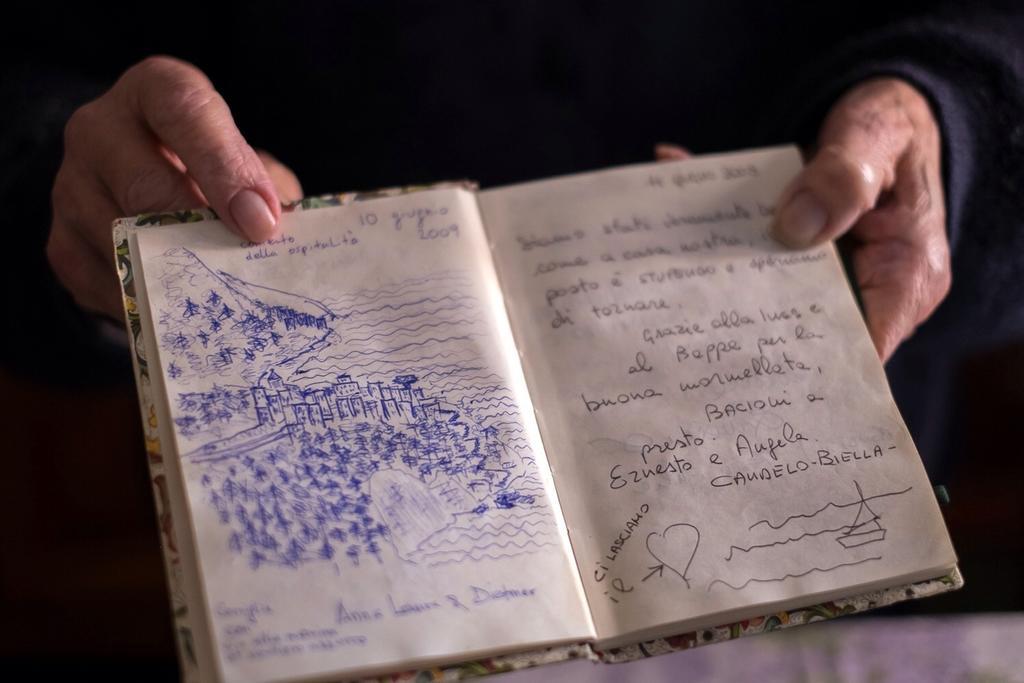 10 giugno
2009
della ospitalità
Anna Laura & Dietmar
giugno 2009
Siamo stati veramente
come a casa nostra,
posto è STUPENDO e speriamo
di tornare.
Grazie alla Luisa e
al Beppe per la
buona marmellata,
BACIONI a
presto.
Ernesto e Angela.
CANDELO-BIELLA-
CI LASCIAMO
il